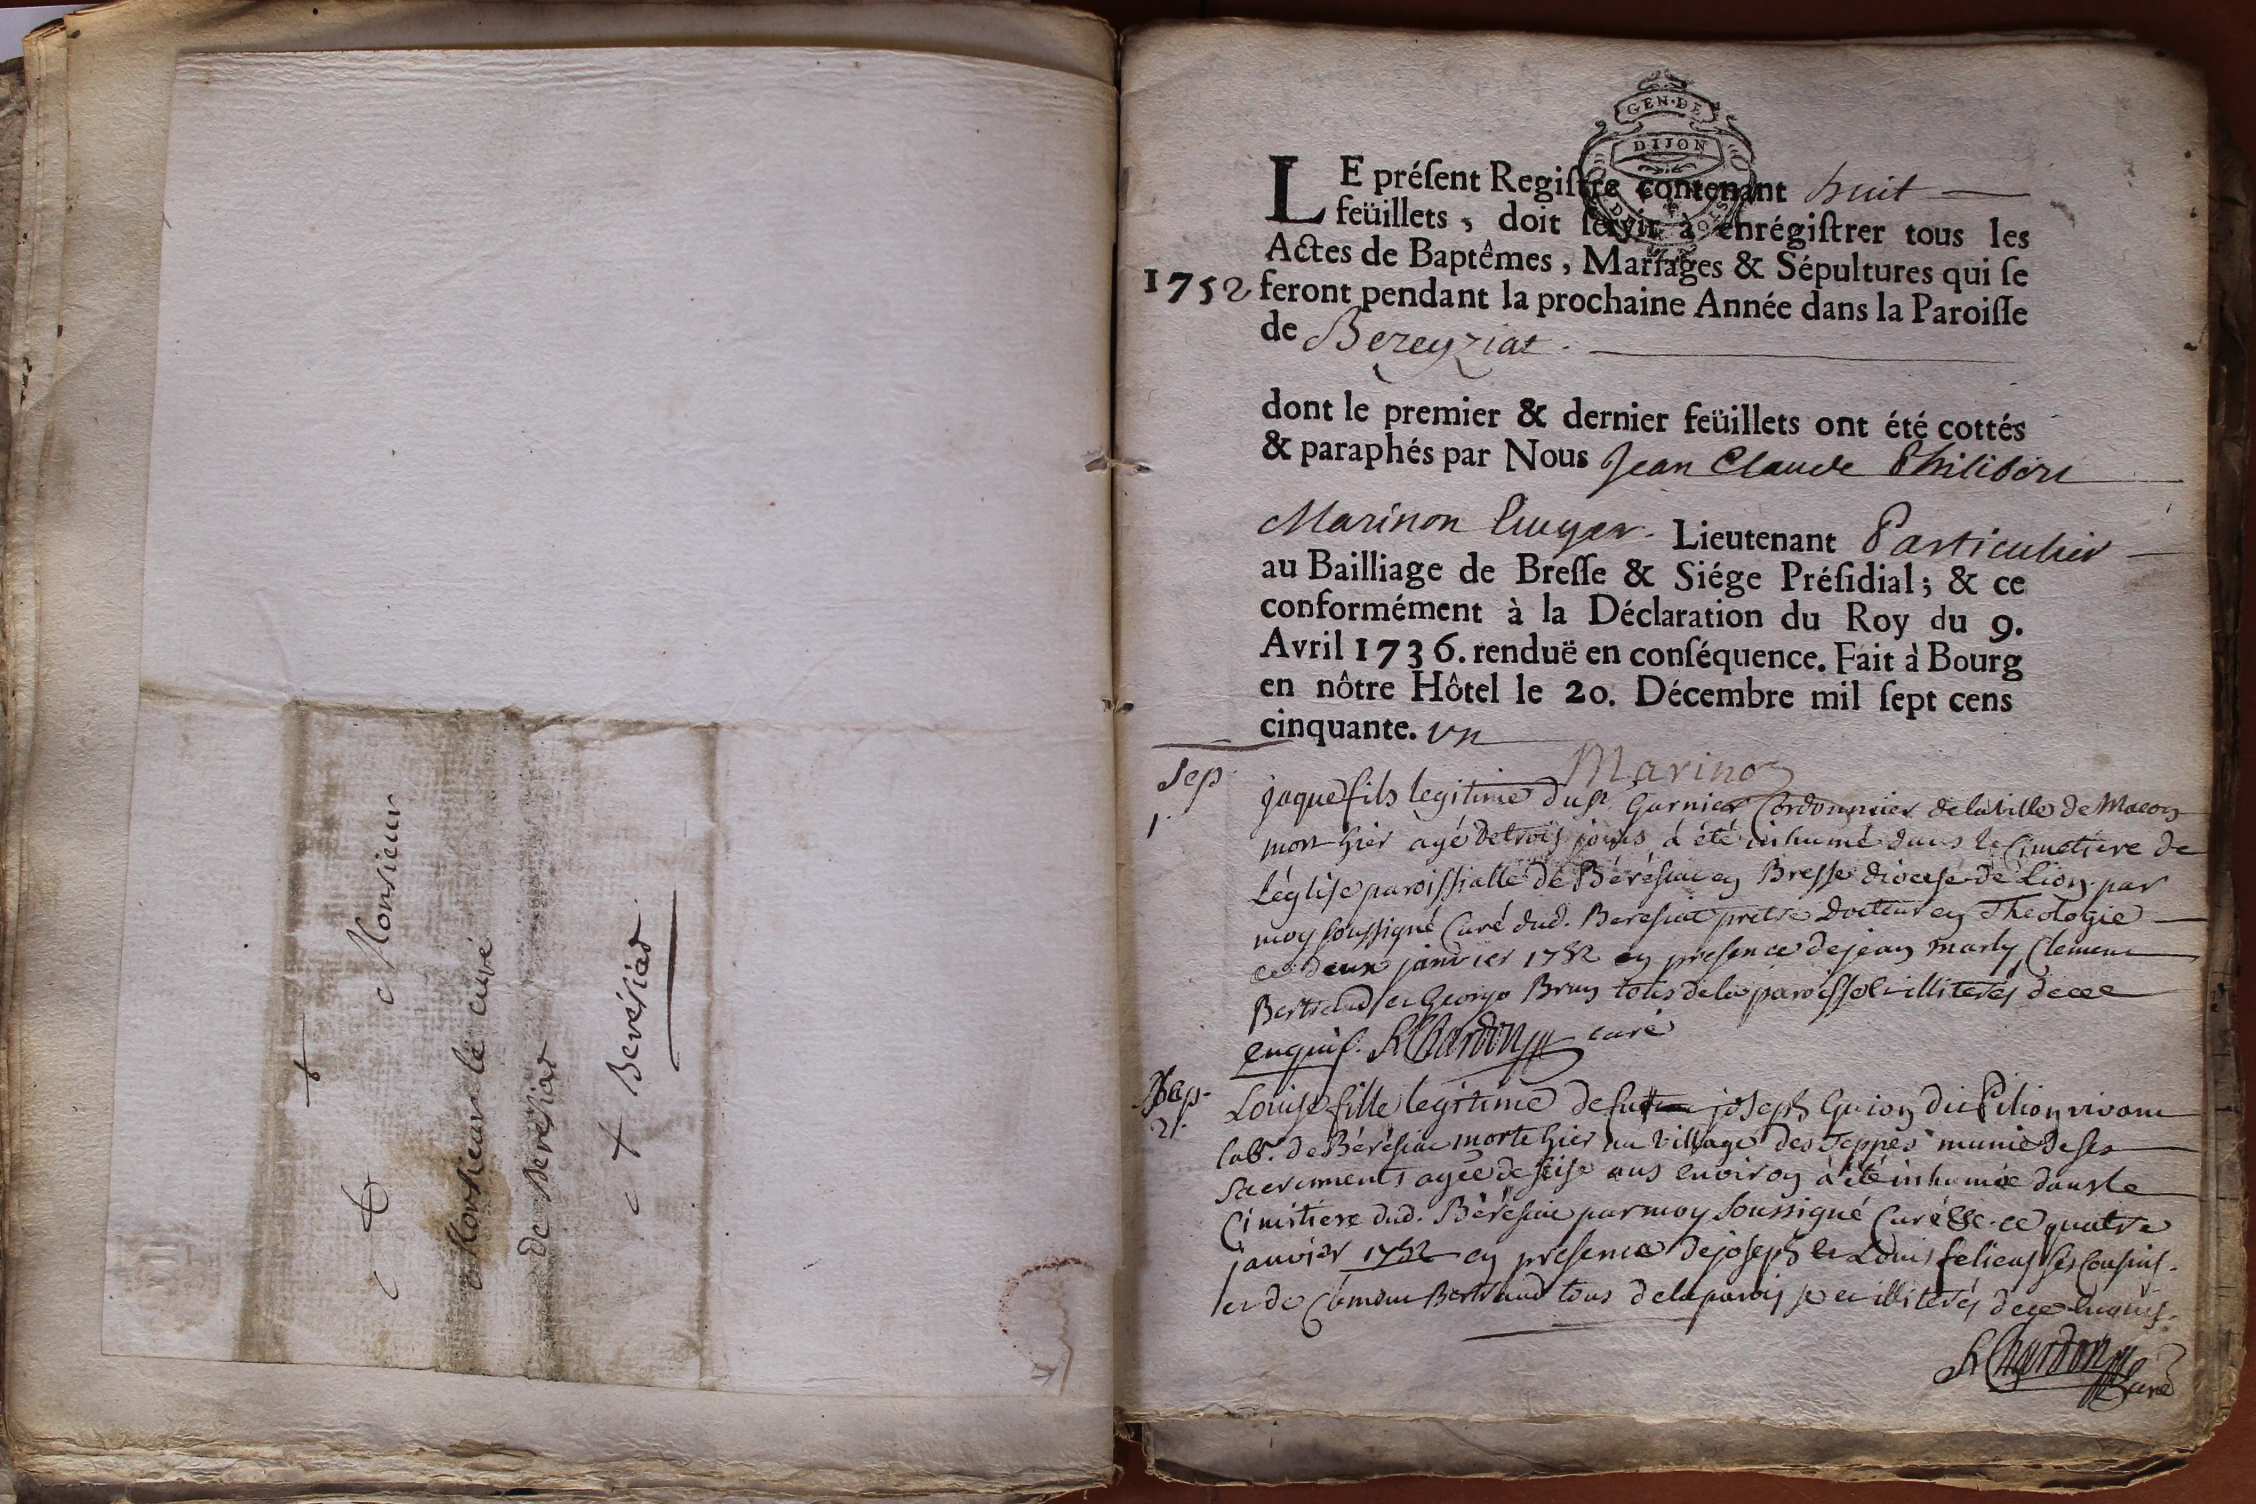 Monsieur
Monsieur le curé
de Beresiat
a Berésiat
GEN·DE
DIJON
LE préſent Regiſtre contenant huit
feüillets, doit ſervir à enrégiſtrer tous les
Actes de Baptêmes, Mariages & Sépultures qui ſe
1752 feront pendant la prochaine Année dans la Paroiſſe
de Bezeyziat.
dont le premier & dernier feüillets ont été cottés
& paraphés par Nous Jean Claude Philibert
Marinon Ecuyer. Lieutenant Particulier
au Bailliage de Breſſe & Siége Préſidial; & ce
conformément à la Déclaration du Roy du 9.
Avril 1736. renduë en conſéquence. Fait à Bourg
en nôtre Hôtel le 20. Décembre mil ſept cens
cinquante. un
Marinon
Sep.
1.
jaque fils legitime du Sr. Garnier Cordonnier de la ville de Macon
mort hier agé de trois jours a été inhumé dans le Cimetiere de
l'église paroissialle de Bérésiat en Bresse diocese de Lion par
moy soussigné Curé dud. Beresiat pretre Docteur en Theologie
ce deux janvier 1752 en presence de jean marly, Clement
Bertrand et George Brun tous de la paroisse et illiterés de ce
enquis. Chardon curé
Sep.
2.
Louise fille legitime de feu joseph Guion dit Pilion vivant
lab. de Bérésiat morte hier au village des Teppes munie de ses
sacrements agée de seise ans environ a été inhumée dans le
Cimitiere dud. Bérésiat par moy soussigné Curé &c. ce quatre
janvier 1752 en presence de joseph et Louis feliens ses cousins
et de Clement Bertrand tous de la paroisse et illiterés de ce enquis.
Chardon
Curé